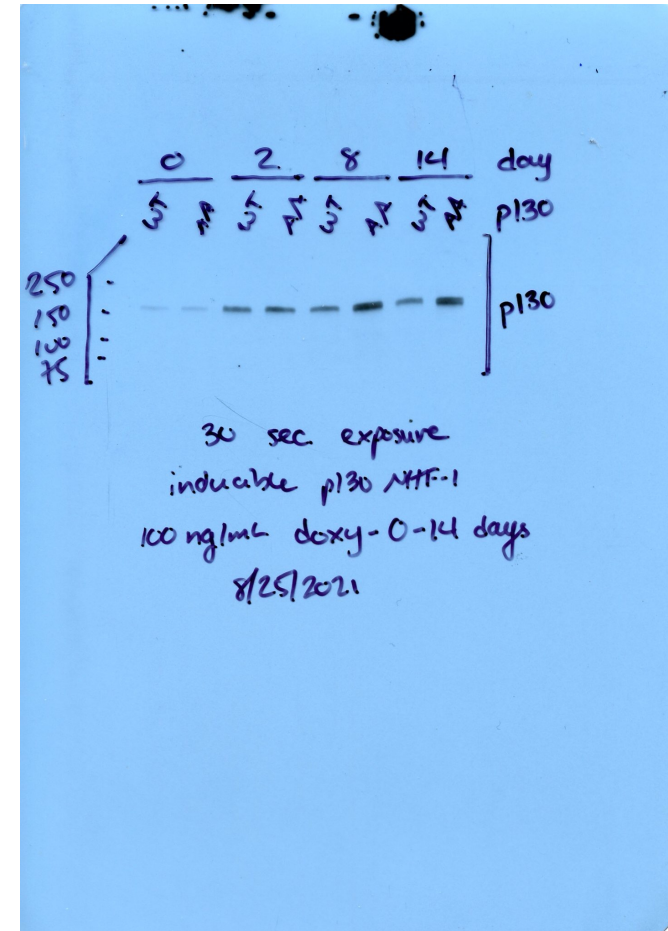 0 2 8 14 day
WT WT WT WT p130
250
150
100
75
p130
30 sec exposure
inducible p130 NHF-1
100 ng/mL doxy - 0-14 days
8/25/2021